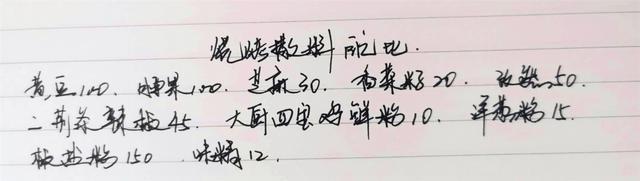 烧烤撒料配比.
黄豆100. 腰果100. 芝麻30. 香菜籽20. 孜然50.
二荆条辣椒45. 大厨四宝鸡鲜粉10. 洋葱粉15.
椒盐粉150 味精12.